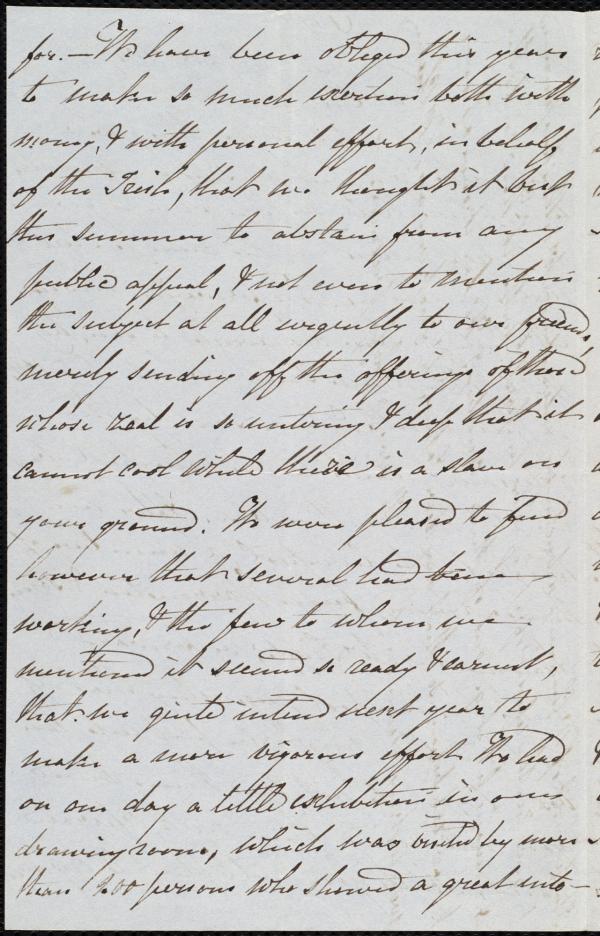 for. — We have been obliged this year
to make so much exertion both with
money, & with personal effort, in behalf
of the Irish, that we thought it best
this summer to abstain from any
public appeal, & not even to mention
the subject at all urgently to our friends,
merely sending off the offerings of those
whose zeal is so untiring & deep that it
cannot cool while there is a slave on
your ground. We were pleased to find
however that several had been
working, & the few to whom we
mentioned it seemed so ready & earnest,
that we quite intend next year to
make a more vigorous effort. We had
on one day a little exhibition in our
drawing room, which was visited by more
than 200 persons who showed a great inte-